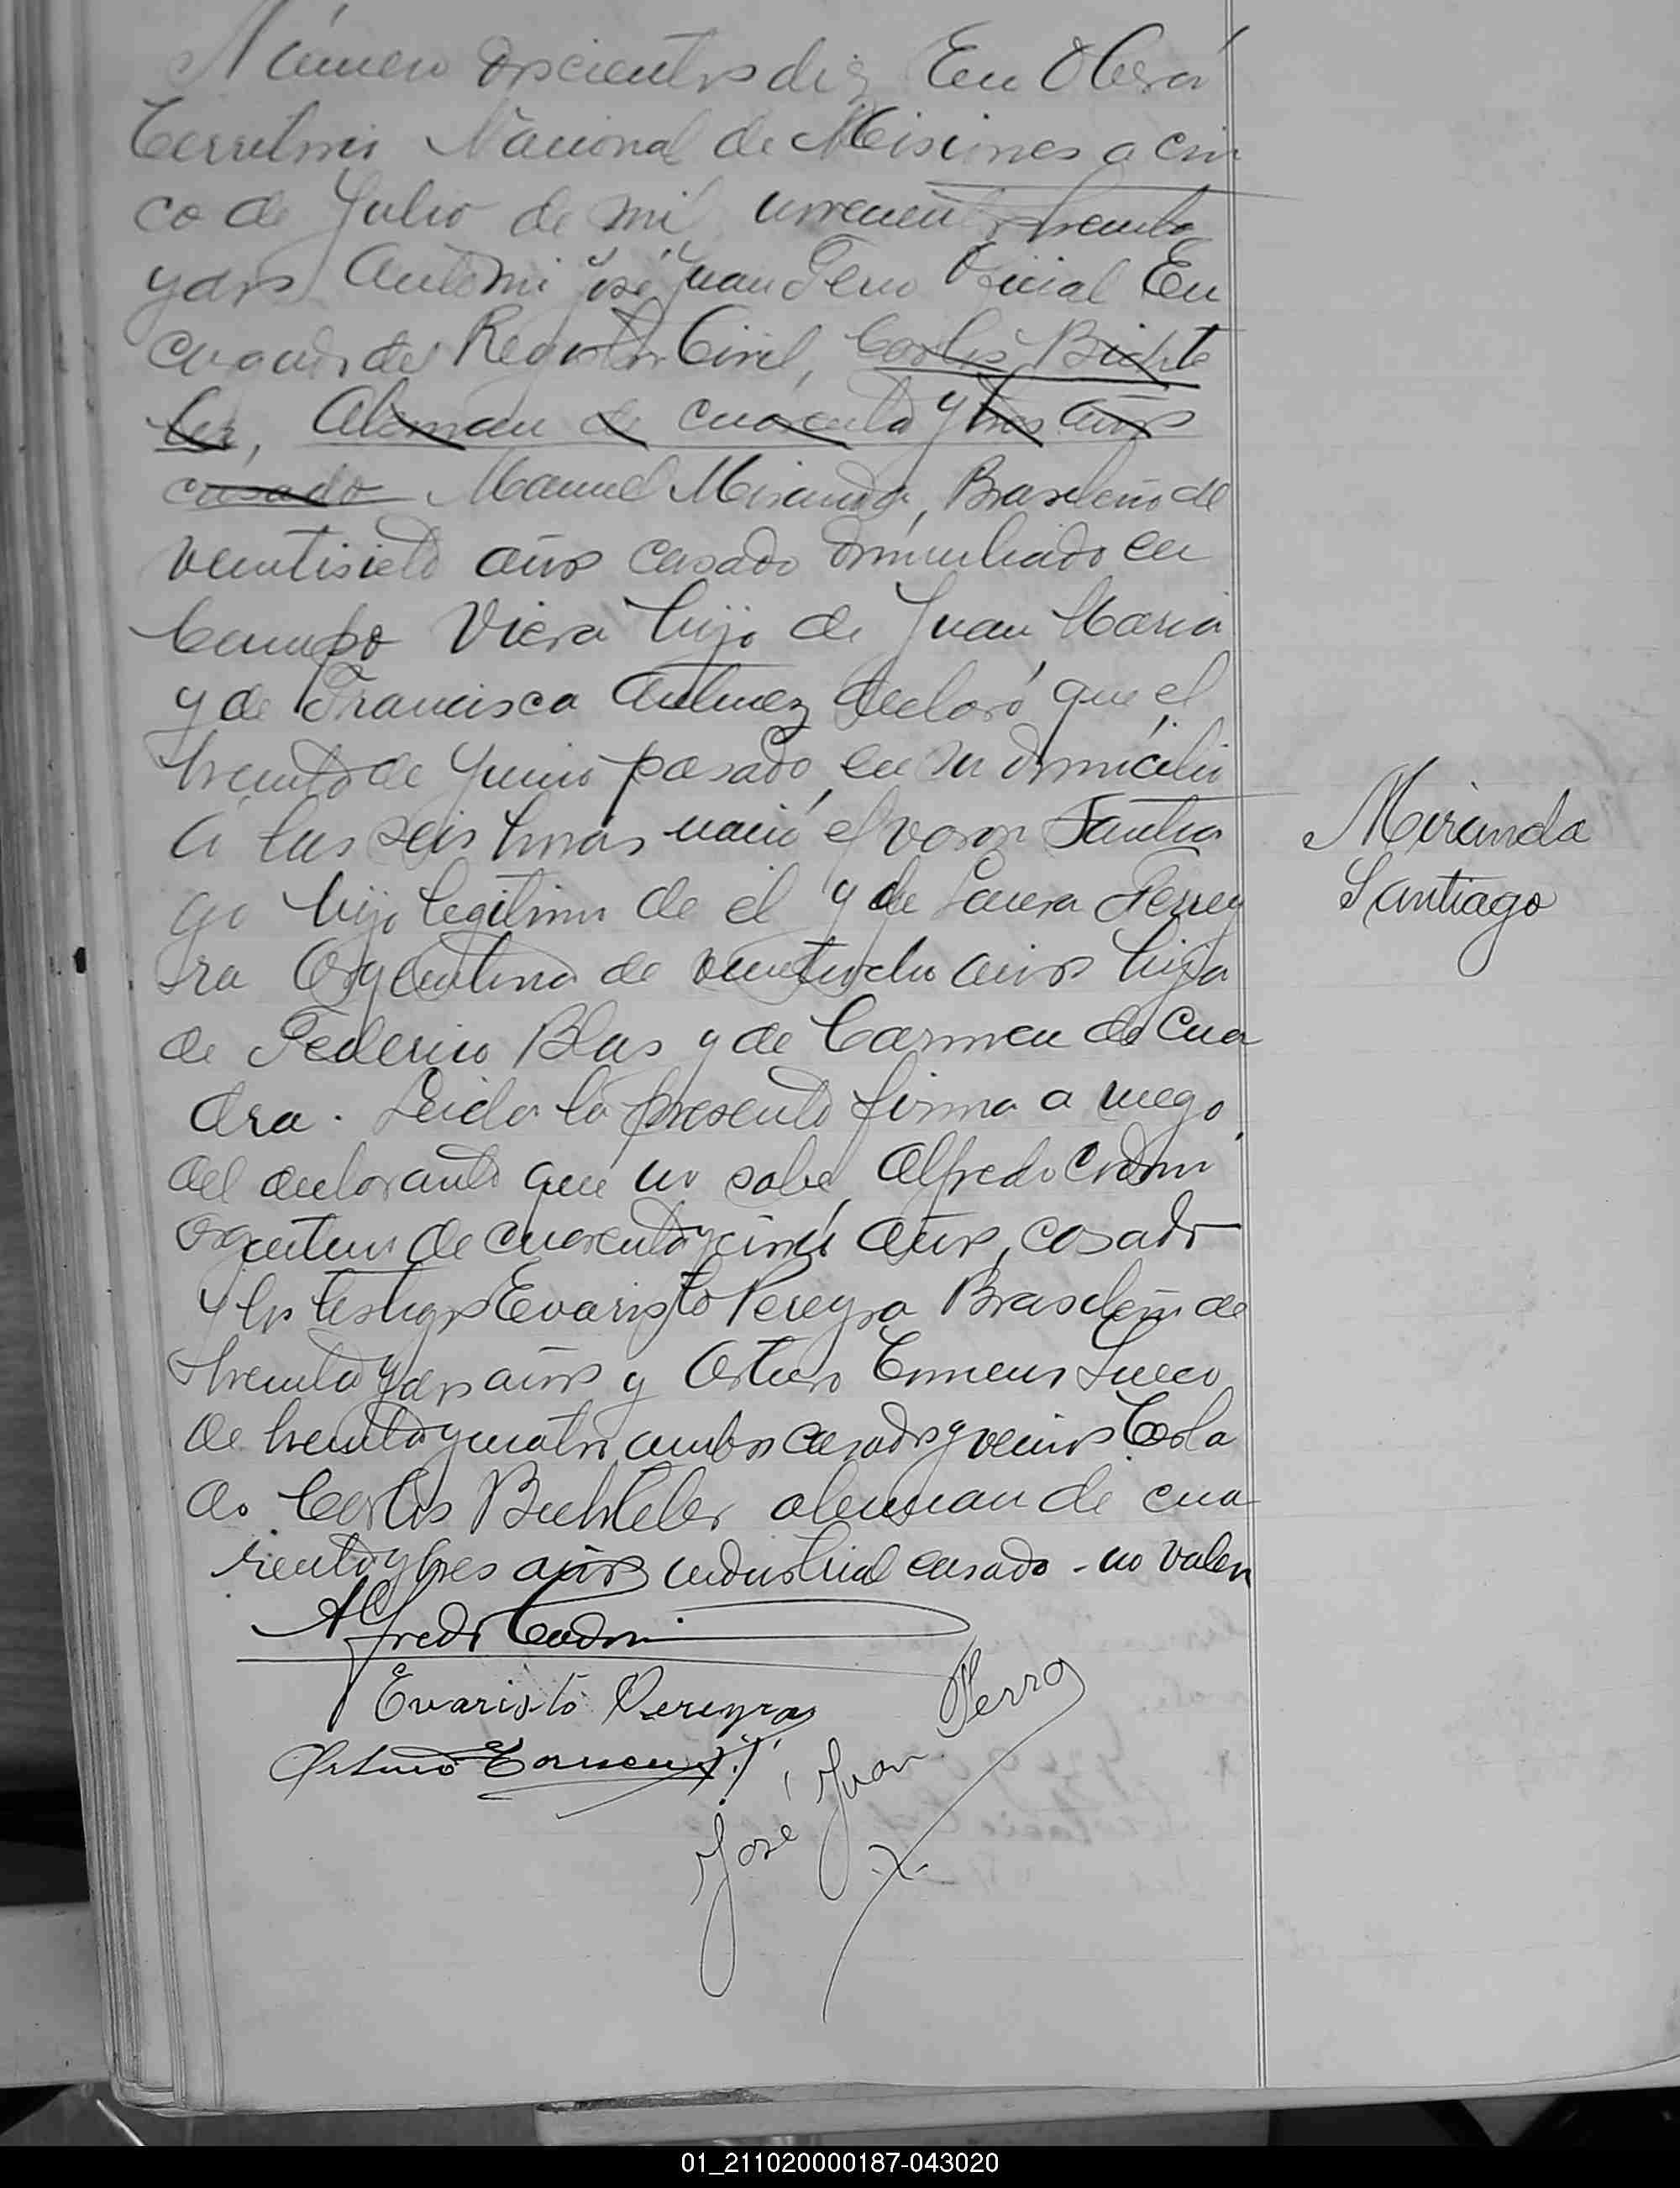 Número doscientos diez En Oberá
Territorio Nacional de Misiones a cin
co de Julio de mil novecientos treinta
y dos Ante mi José Juan Perro Oficial En
cargado del Registro Civil, Carlos Buchte
ler, Aleman de cuarenta y tres años
casado Manuel Miranda, Brasileño de
veintisiete años casado domiciliado en
Campo Viera hijo de Juan Maria
y de Francisca declaró que el
treinta de Junio pasado, en su domicilio
a las seis horas nació el varon Santia
go hijo legitimo de el y de Laura Ferrey
ra Argentina de veintiocho años hija
de Federico Blas y de Carmen de Cua
dra. Leida la presente firma a ruego
del declarante que no sabe, Alfredo
argentino de cuarenta y cinco años, casado
y los testigos Evaristo Pereyra Brasileño de
treinta y dos años y Arturo Sueco
de treinta y cuatro ambos casados y vecinos
Carlos aleman de cua
renta y tres años industrial casado - no valen
Miranda
Santiago
Alfredo
Evaristo Pereyra
Arturo
José Juan Perro
01_211020000187-043020